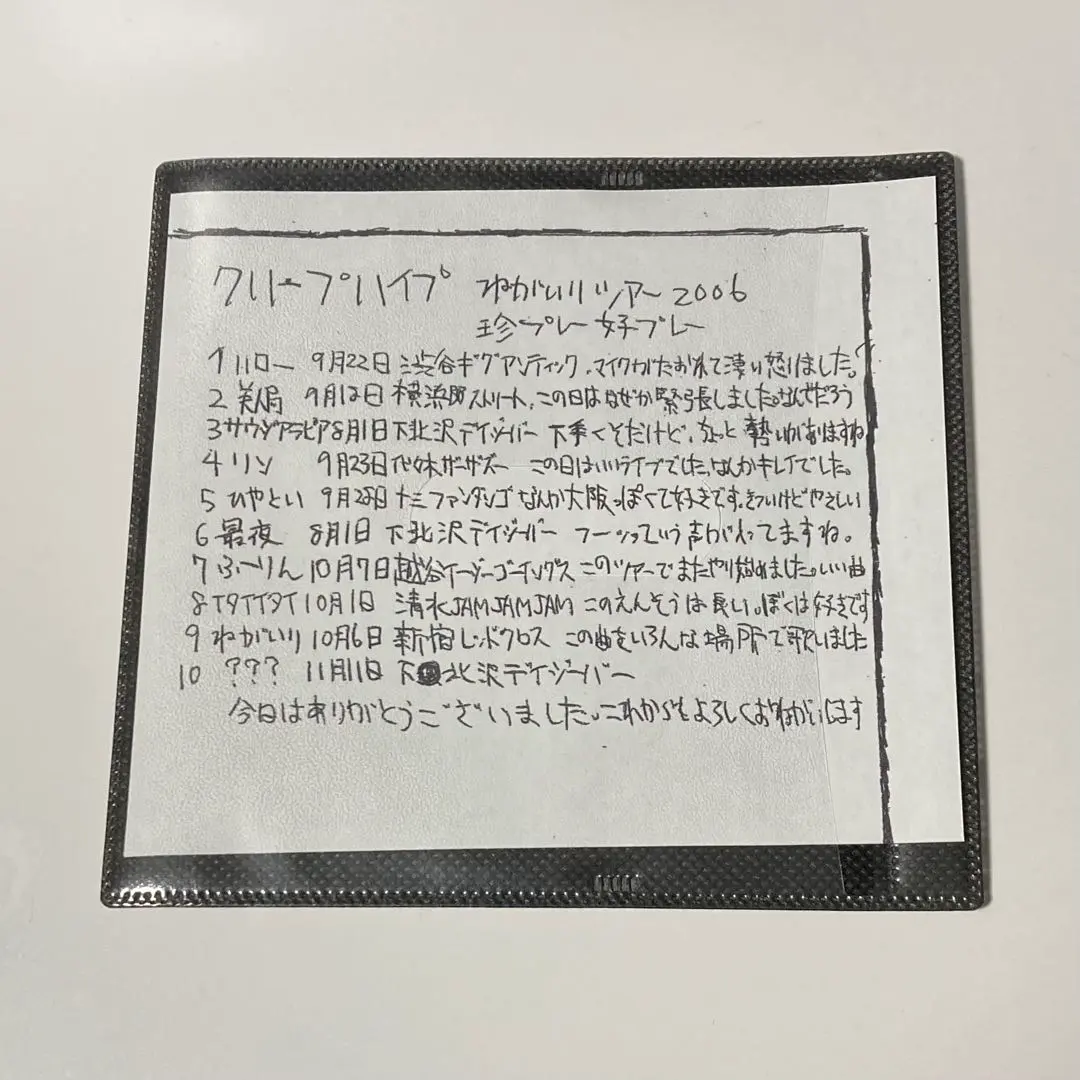 クリープハイプ ねがいりツアー2006
珍プレー好プレー
1 ハロー 9月22日 渋谷ギグアンティック、マイクがたおれて凄い怒りました。
2 美人局 9月12日 横浜ストリート、この日はなぜか緊張しました。なんでだろう
3 サウジアラビア 8月1日 下北沢デイジーバー 下手くそだけど、ちょっと勢いがありますね
4 リン 9月23日 代々木ザーザズー この日はいいライブでした。なんかキレイでした。
5 ひやとい 9月28日 十三ファンダンゴ なんか大阪っぽくて好きです。きついけどやさしい
6 最夜 8月1日 下北沢デイジーバー フーッっていう声が入ってますね。
7 ふーりん 10月7日 越谷イージーゴーイングス このツアーでまたやり始めました。いい曲
8 イタイイタイ 10月1日 清水JAMJAMJAM このえんそうは長い。ぼくは好きです
9 ねがいり 10月6日 新宿レッドクロス この曲をいろんな場所で歌いました
10 ??? 11月11日 下北沢デイジーバー
今日はありがとうございました。これからもよろしくおねがいします